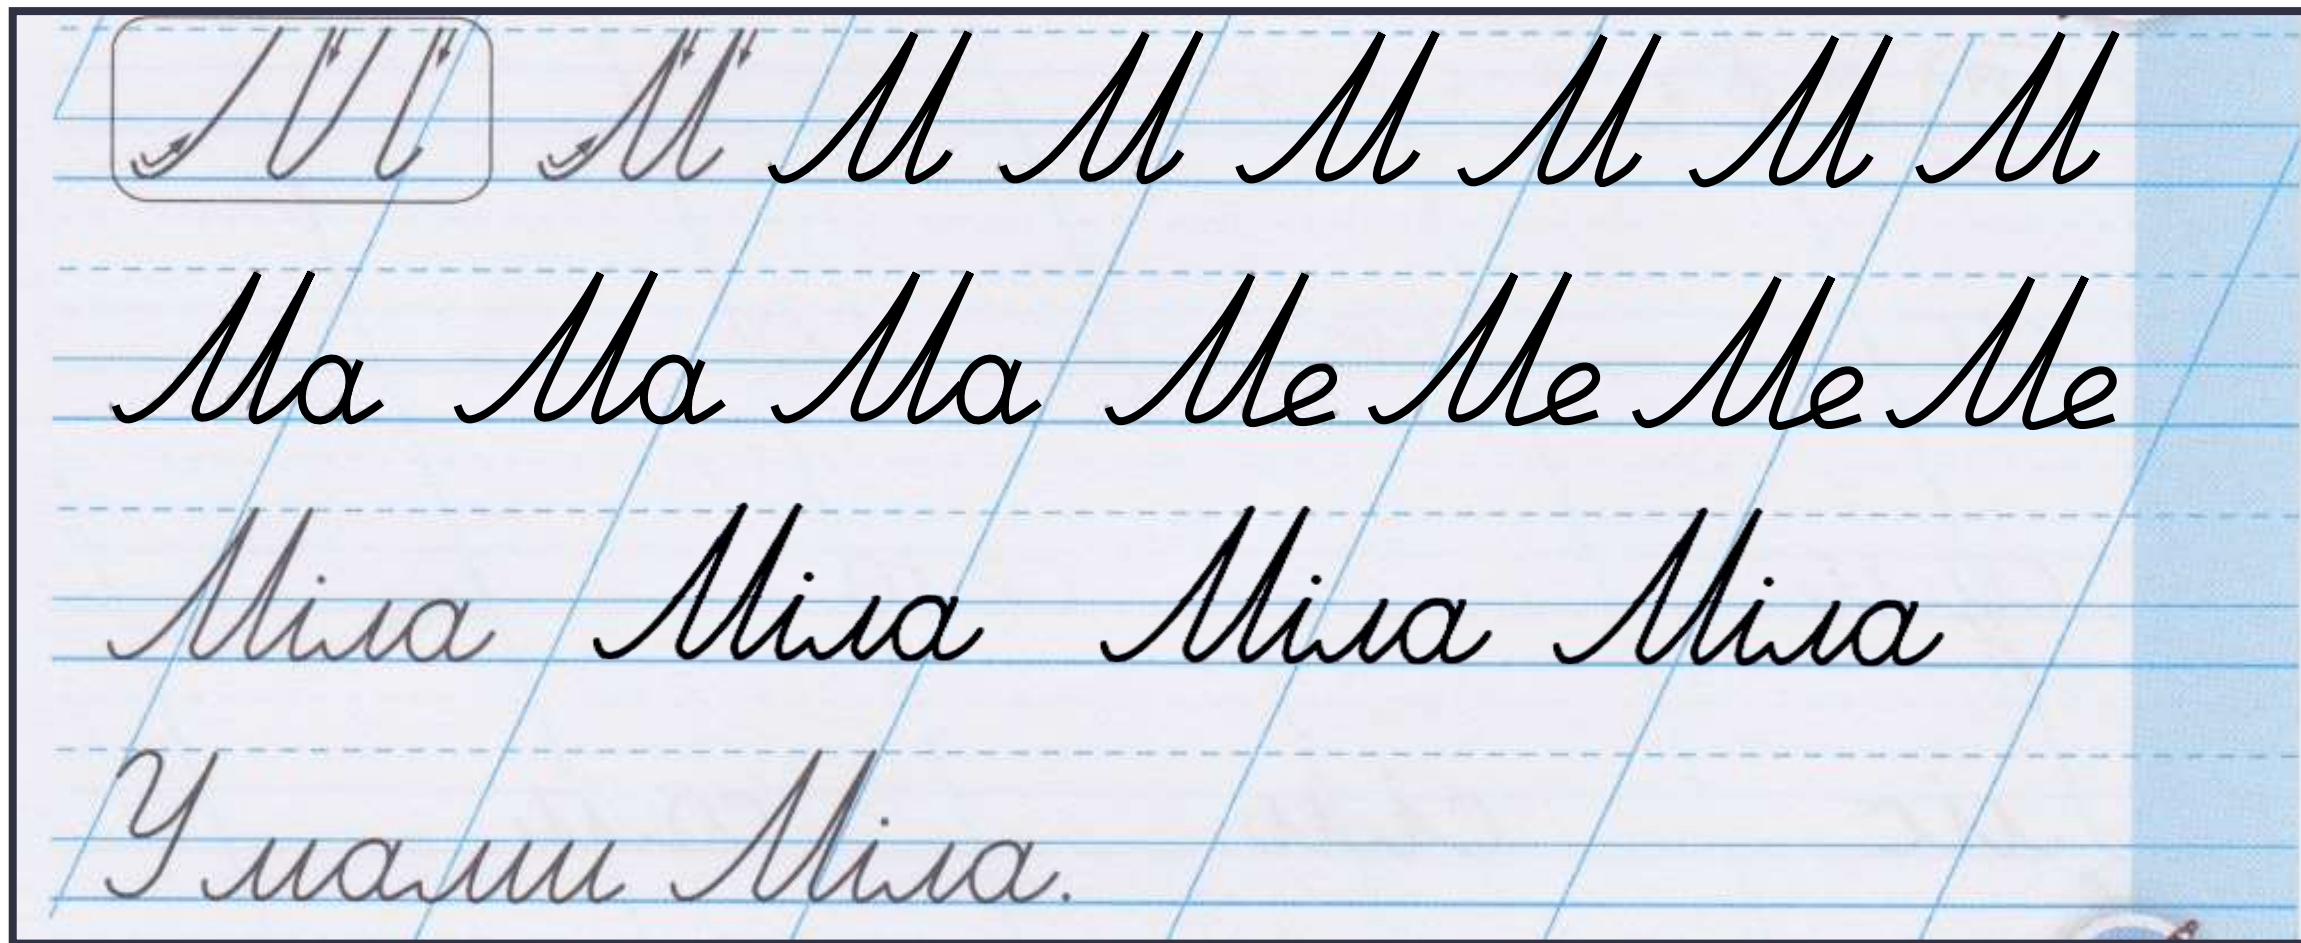 М М М М М М М М
Ма Ма Ма Ме Ме Ме Ме
Міла Міла Міла Міла
У мами Міла.